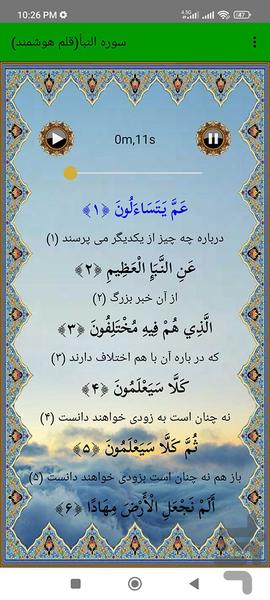 10:26 PM
سوره النبأ(قلم هوشمند)
0m,11s
عَمَّ يَتَسَاءَلُونَ ﴿١﴾
درباره چه چیز از یکدیگر می پرسند (۱)
عَنِ النَّبَإِ الْعَظِيمِ ﴿٢﴾
از آن خبر بزرگ (۲)
الَّذِي هُمْ فِيهِ مُخْتَلِفُونَ ﴿٣﴾
که در باره آن با هم اختلاف دارند (۳)
كَلَّا سَيَعْلَمُونَ ﴿۴﴾
نه چنان است به زودی خواهند دانست (۴)
ثُمَّ كَلَّا سَيَعْلَمُونَ ﴿۵﴾
باز هم نه چنان است بزودی خواهند دانست (۵)
أَلَمْ نَجْعَلِ الْأَرْضَ مِهَادًا ﴿۶﴾